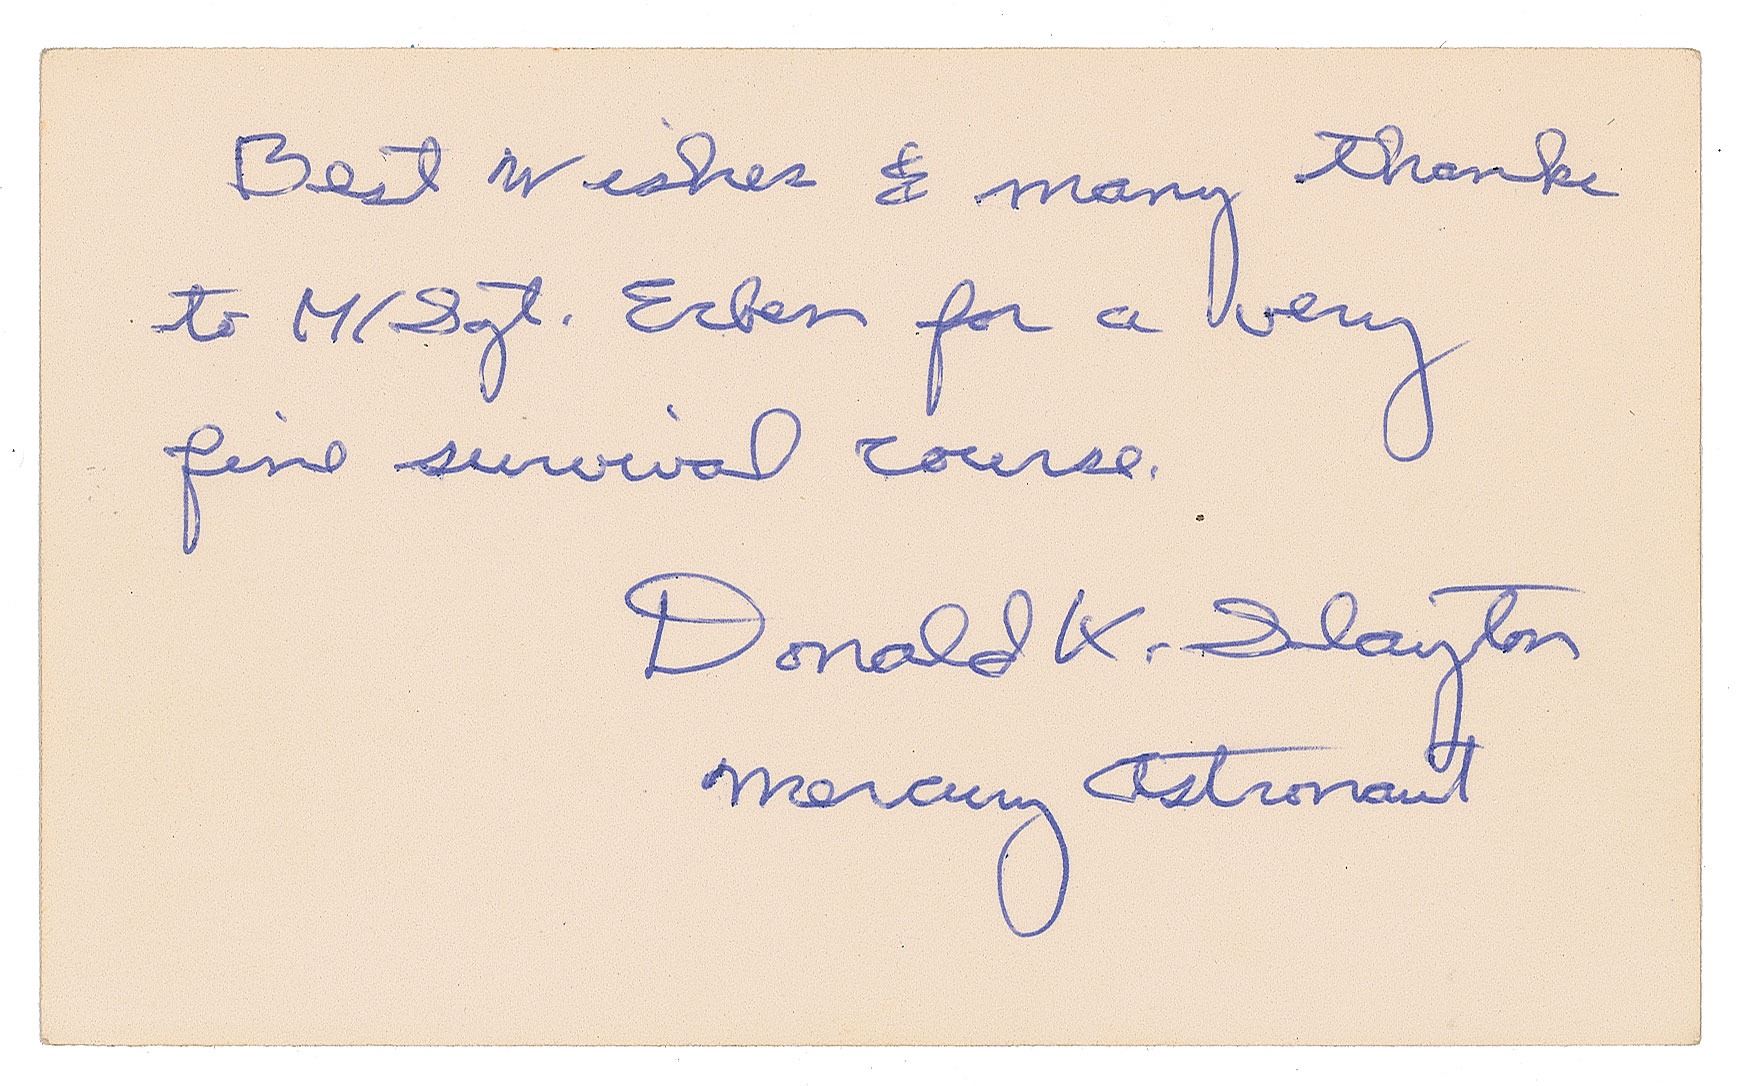 Best Wishes & many thanks
to M/Sgt. Erben for a very
fine survival course.
Donald K. Slayton
Mercury Astronaut